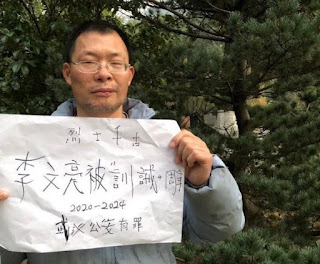 烈士千古
李文亮被"訓誡"
2020-2024
武汉公安有罪